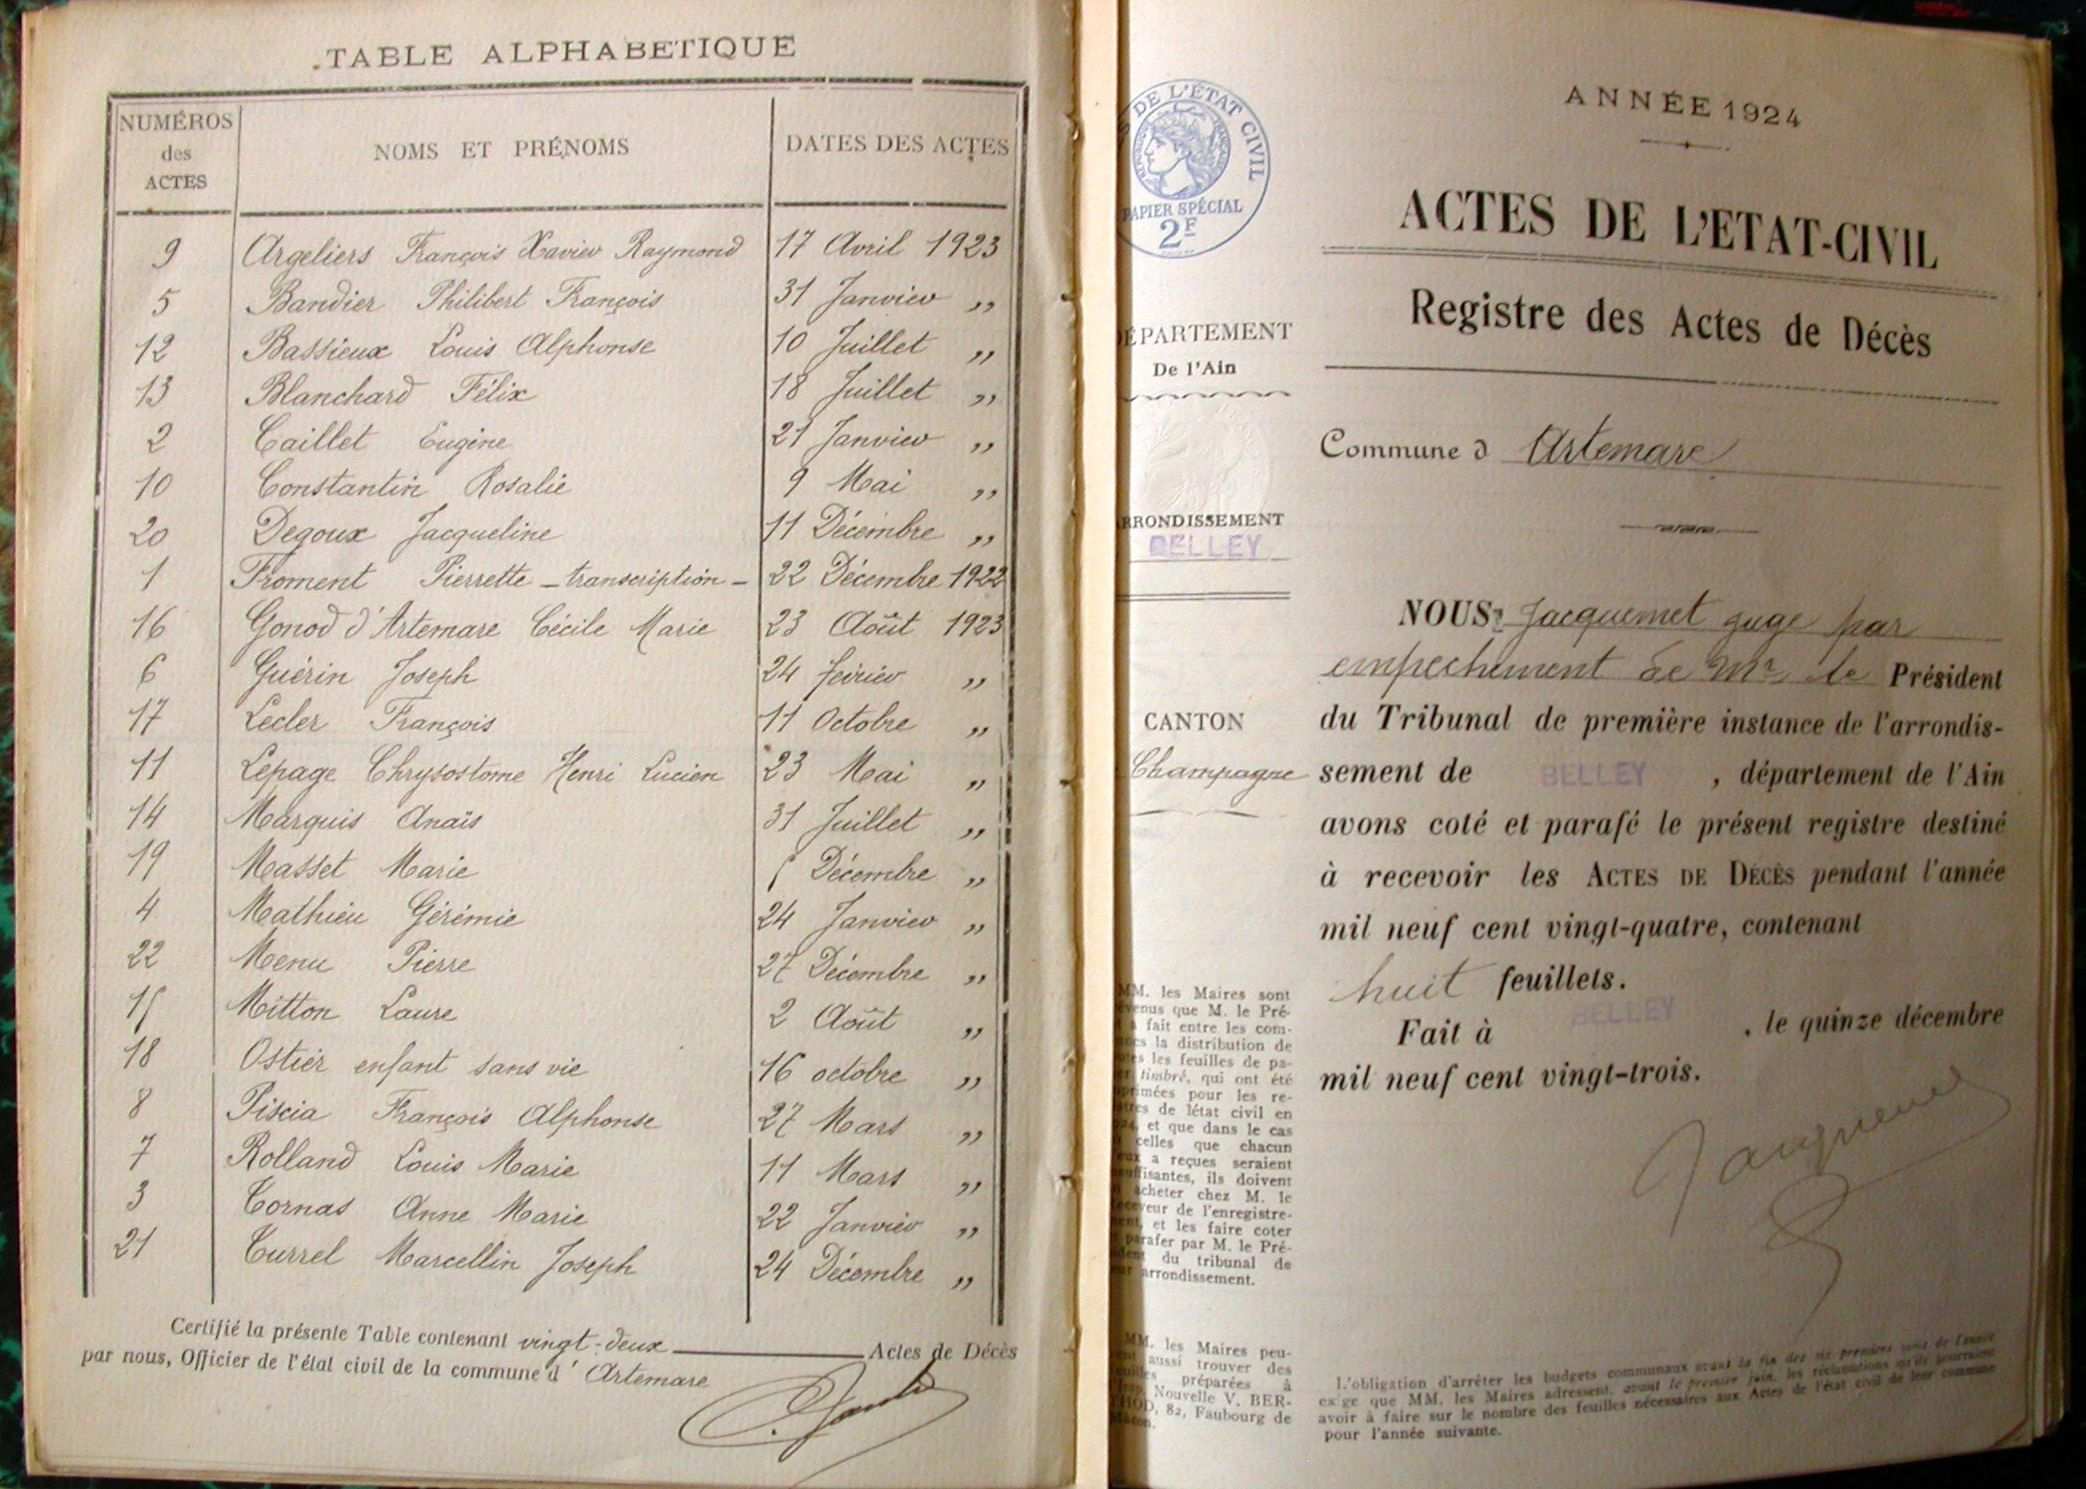 TABLE ALPHABETIQUE
NUMÉROS des ACTES NOMS ET PRÉNOMS DATES DES ACTES
9 Argeliers François Xavier Raymond 17 Avril 1923
5 Bandier Philibert François 31 Janvier „
12 Bassieux Louis Alphonse 10 Juillet „
13 Blanchard Félix 18 Juillet „
2 Caillet Eugène 21 Janvier „
10 Constantin Rosalie 9 Mai „
20 Degoux Jacqueline 11 Décembre „
1 Froment Pierrette - transcription - 22 Décembre 1922
16 Gonod d'Artemare Cécile Marie 23 Août 1923
6 Guérin Joseph 24 février „
17 Lecler François 11 Octobre „
11 Lepage Chrysostome Henri Lucien 23 Mai „
14 Marquis Anaïs 31 Juillet „
19 Masset Marie 5 Décembre „
4 Mathieu Gérémie 24 Janvier „
22 Menu Pierre 27 Décembre „
15 Mitton Laure 2 Août „
18 Ostier enfant sans vie 16 octobre „
8 Piscia François Alphonse 27 Mars „
7 Rolland Louis Marie 11 Mars „
3 Tornas Anne Marie 22 Janvier „
21 Turrel Marcellin Joseph 24 Décembre „
Certifié la présente Table contenant vingt-deux Actes de Décès
par nous, Officier de l'état civil de la commune d' Artemare
DE L'ÉTAT CIVIL
PAPIER SPÉCIAL
2F
DÉPARTEMENT
De l'Ain
ARRONDISSEMENT
BELLEY
CANTON
Champagne
MM. les Maires sont
prévenus que M. le Pré-
a fait entre les com-
la distribution de
les feuilles de pa-
timbré, qui ont été
imprimées pour les re-
gistres de létat civil en
et que dans le cas
celles que chacun
a reçues seraient
insuffisantes, ils doivent
acheter chez M. le
Receveur de l'enregistre-
ment, et les faire coter
parafer par M. le Pré-
sident du tribunal de
arrondissement.
MM. les Maires peu-
aussi trouver des
préparées à
Nouvelle V. BER-
82, Faubourg de
Mâcon.
ANNÉE 1924
ACTES DE L'ETAT-CIVIL
Registre des Actes de Décès
Commune d Artemare
NOUS, Jacquemet juge par
empechement de Mr le Président
du Tribunal de première instance de l'arrondis-
sement de BELLEY, département de l'Ain
avons coté et parafé le présent registre destiné
à recevoir les ACTES DE DÉCÈS pendant l'année
mil neuf cent vingt-quatre, contenant
huit feuillets.
Fait à BELLEY, le quinze décembre
mil neuf cent vingt-trois.
Jacquemet
L'obligation d'arrêter les budgets communaux avant la fin des six premiers mois de l'année
exige que MM. les Maires adressent, avant le premier juin, les réclamations qu'ils pourraient
avoir à faire sur le nombre des feuilles nécessaires aux Actes de l'état civil de leur commune
pour l'année suivante.